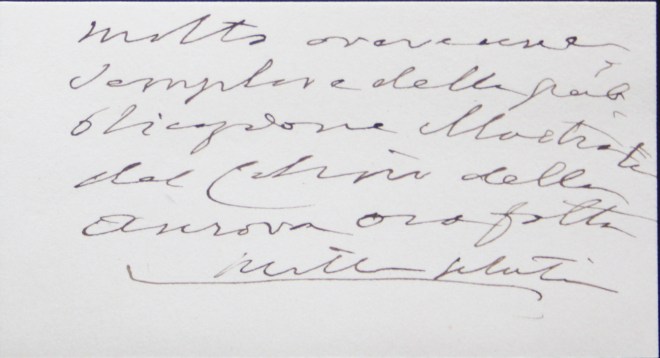 molto averne un e
semplare della pub
blicazione illustrata
del Casino della
Aurora ora fatta
mille saluti